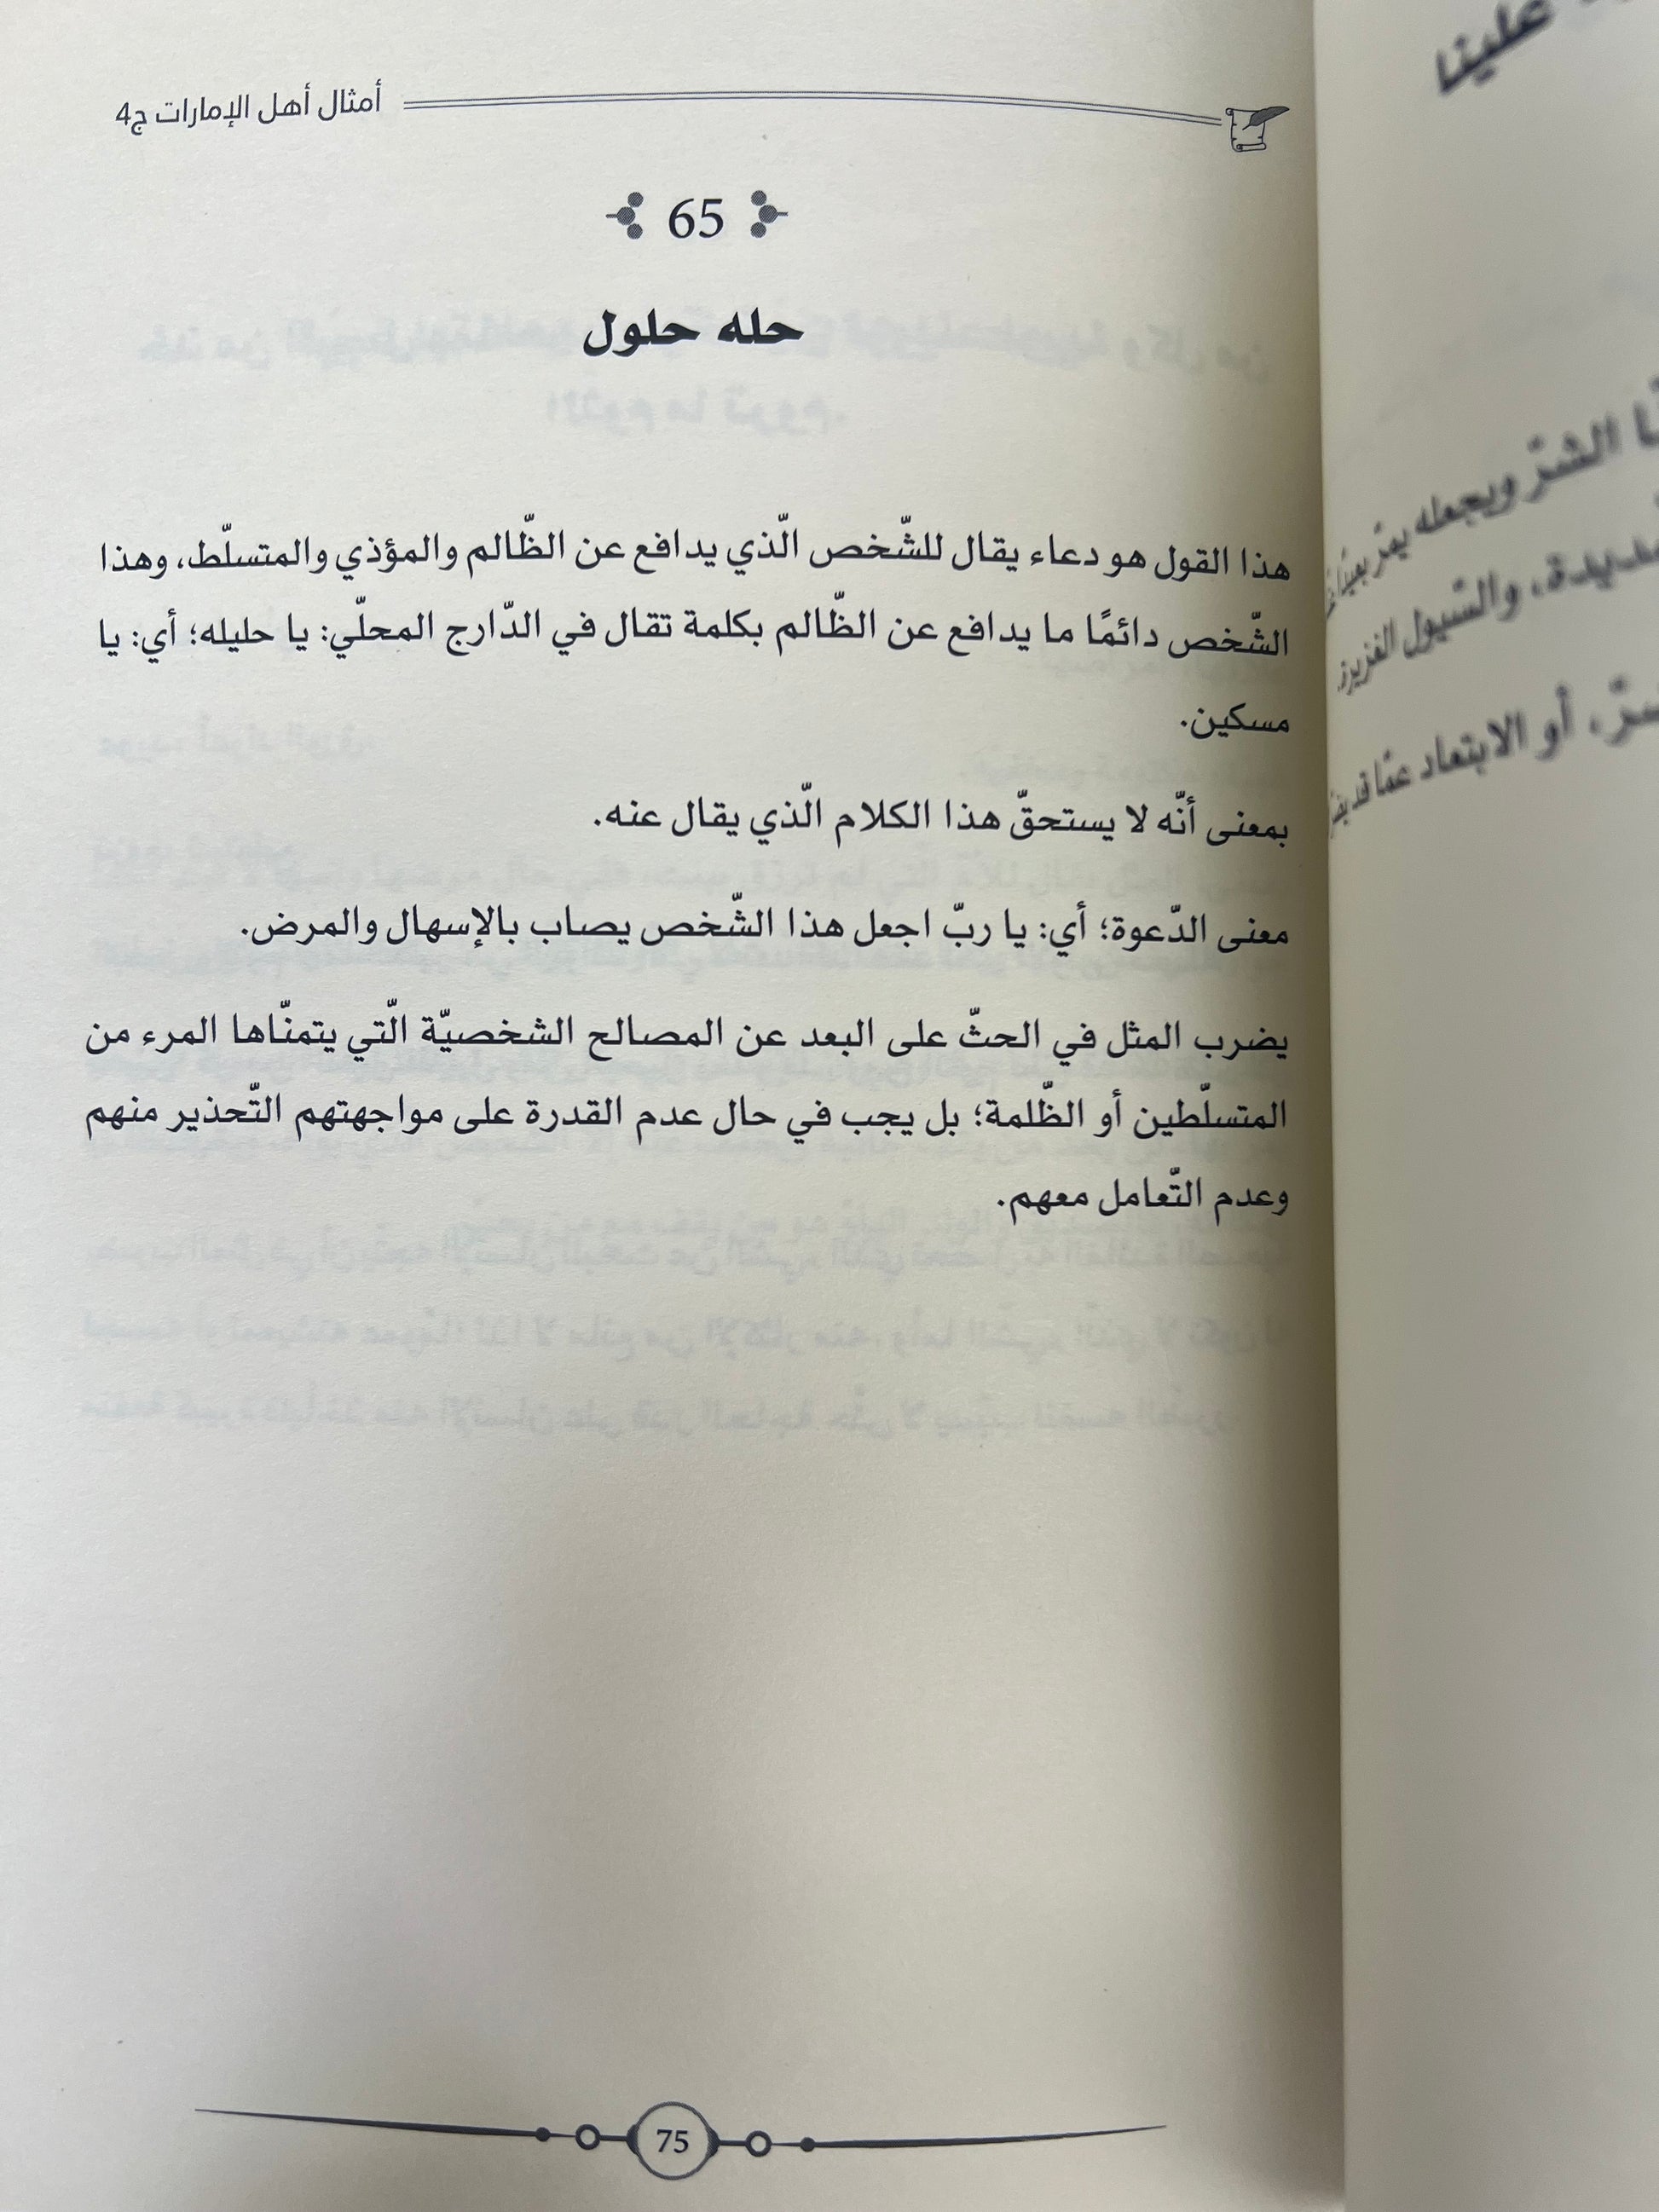 أمثال أهل الإمارات ج4
65
حله حلول
هذا القول هو دعاء يقال للشّخص الّذي يدافع عن الظّالم والمؤذي والمتسلّط، وهذا
الشّخص دائمًا ما يدافع عن الظّالم بكلمة تقال في الدّارج المحلّي: يا حليله؛ أي: يا
مسكين.
بمعنى أنّه لا يستحقّ هذا الكلام الّذي يقال عنه.
معنى الدّعوة؛ أي: يا ربّ اجعل هذا الشّخص يصاب بالإسهال والمرض.
يضرب المثل في الحثّ على البعد عن المصالح الشخصيّة الّتي يتمنّاها المرء من
المتسلّطين أو الظّلمة؛ بل يجب في حال عدم القدرة على مواجهتهم التّحذير منهم
وعدم التّعامل معهم.
75
علينا
الشرّ ويجعله يمرّ
والسّيول الغزيرة
أو الابتعاد عمّا قد